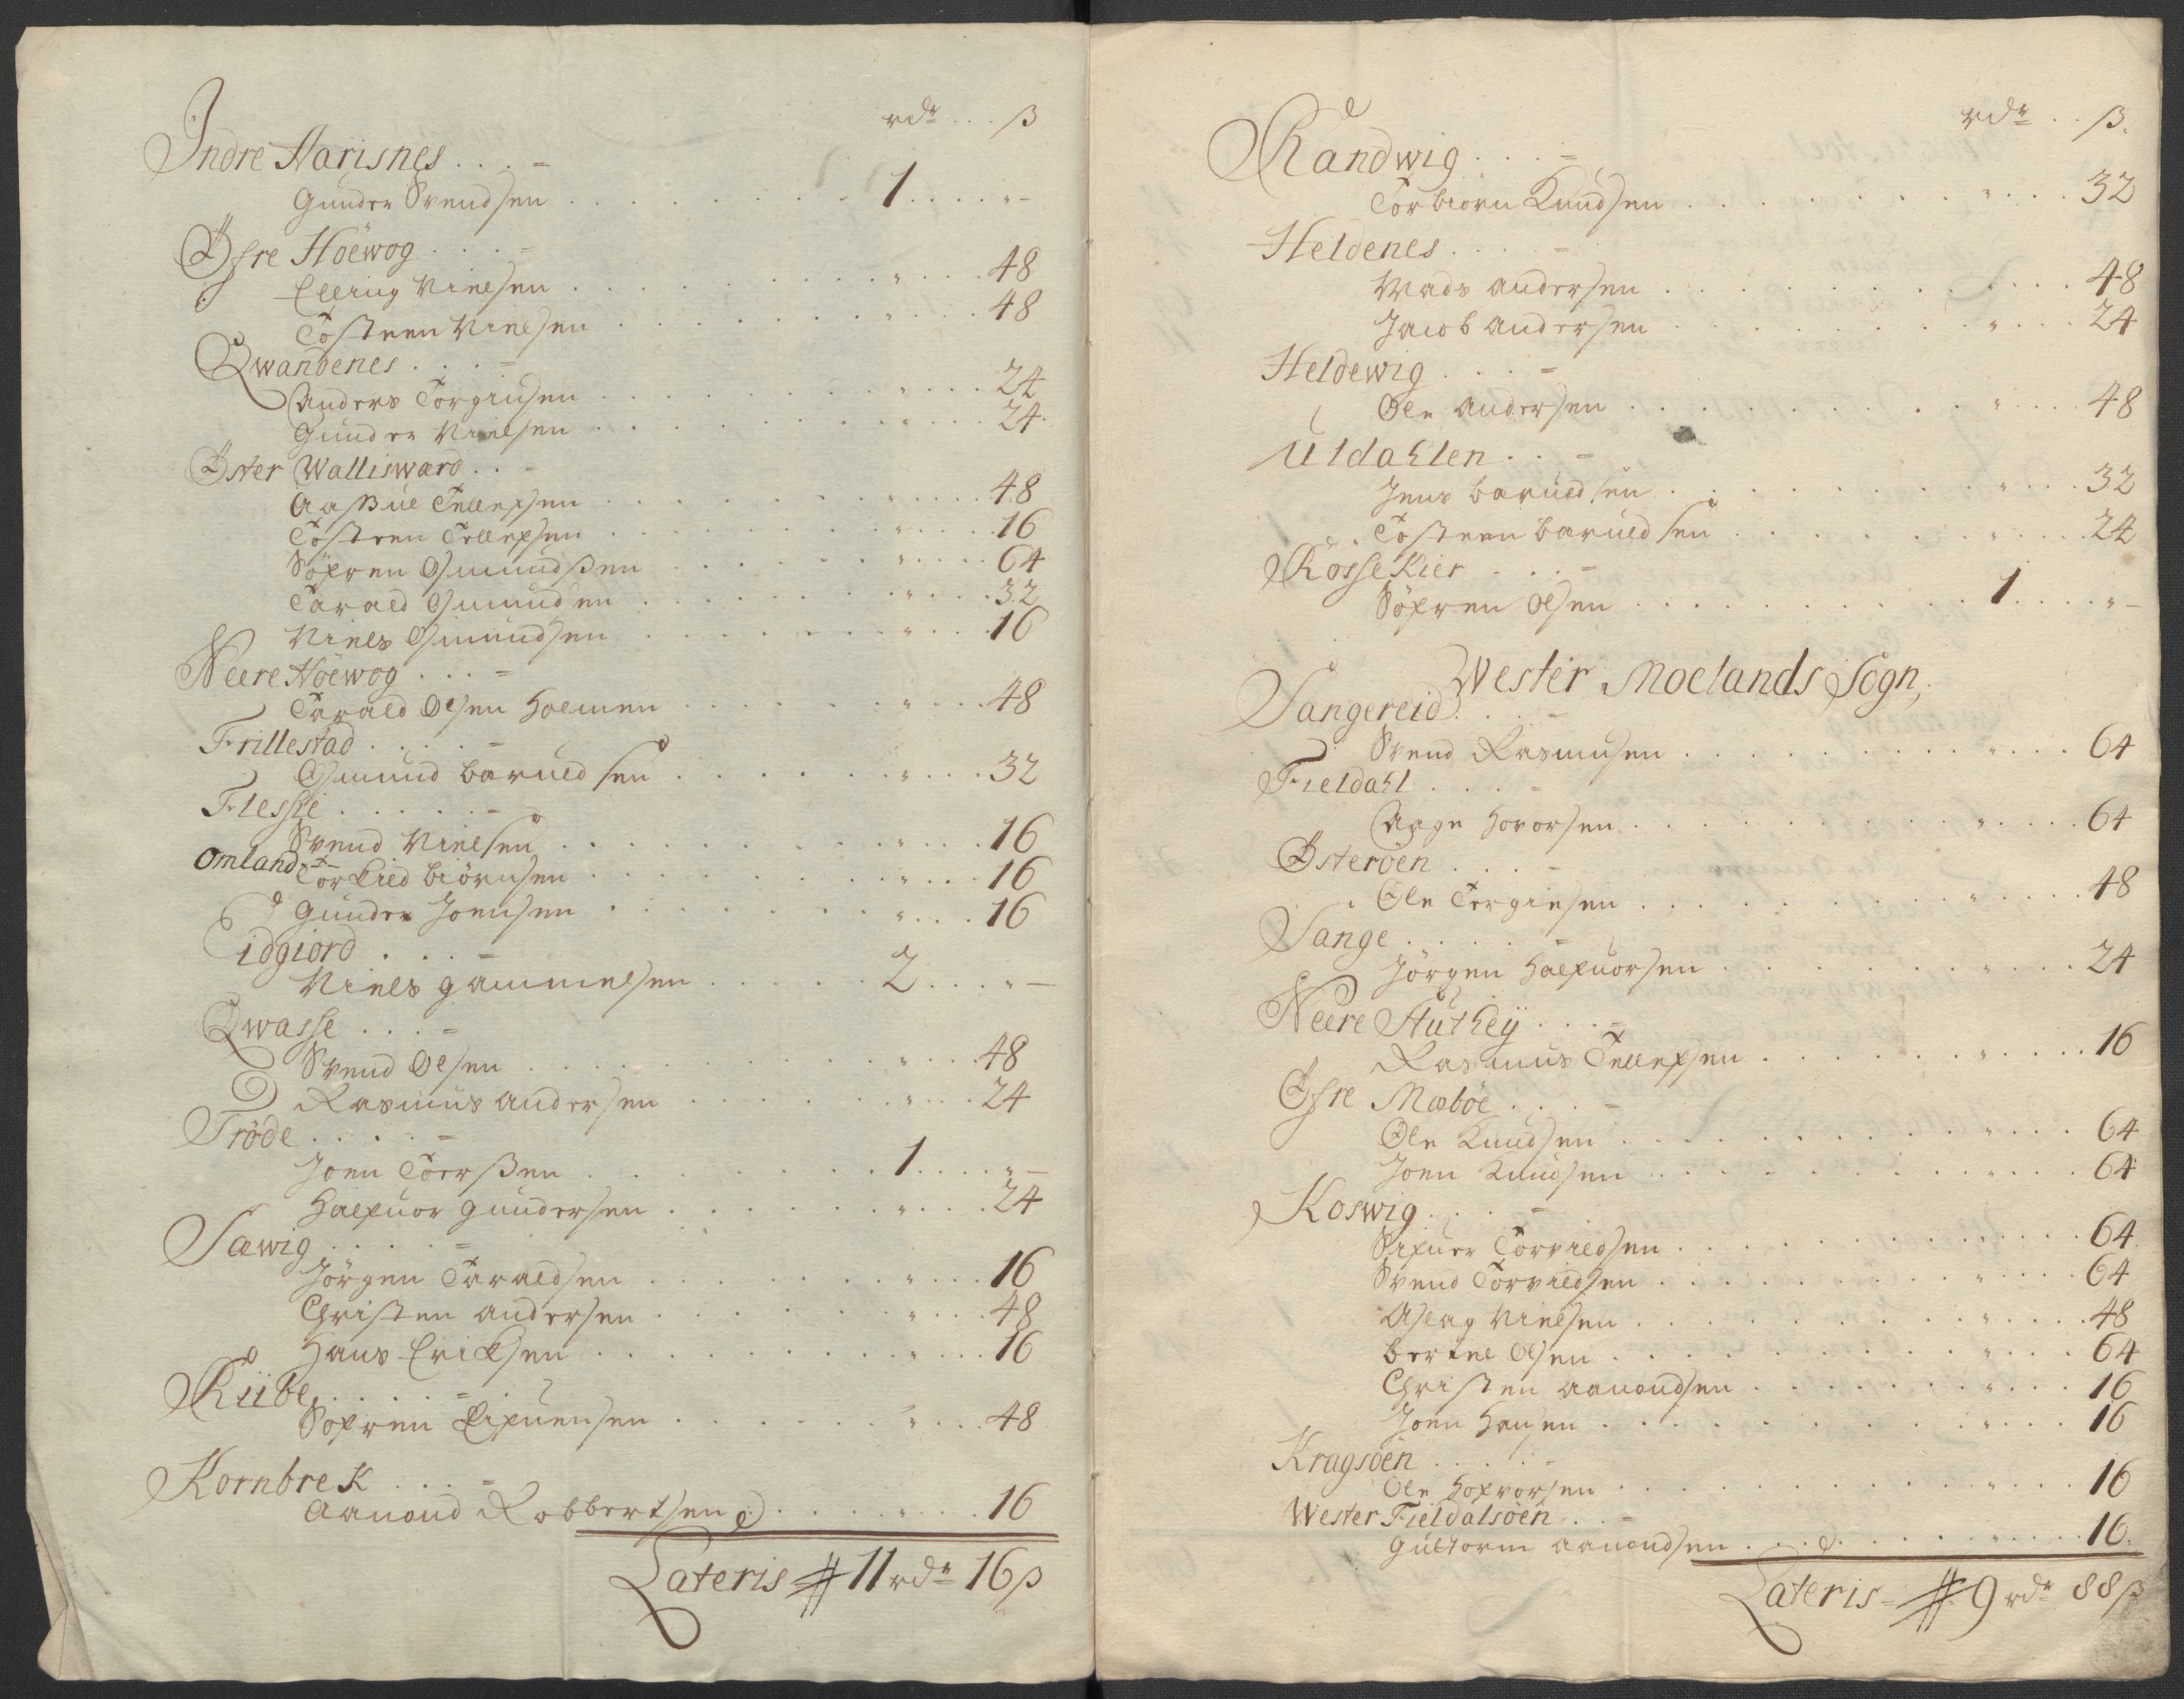 rdr ... ß
Indre Aarisnes . . . =
Gunder Svendsen . . . 1 . . . " -
Øfre Höewog . . . =
Elling Nielsen . . . " . . . 48
Tosteen Nielsen . . . " . . . 48
Qwandenes . . . =
Anders Torgiusen . . . " . . . 24
Gunder Nielsen . . . " . . . 24.
Øster Wallisward . . =
Aassul Tellefsen . . . " . . . 48
Tosteen Tellefsen . . . " . . . 16
Söfren Osmundsen . . . " . . . 64
Tarald Osmunden . . . " . . . 32
Niels Osmundsen . . . " . . . 16
Neere Höewog . . . =
Tarald Olsen Holmen . . . " . . . 48
Frillestad . . . =
Osmund baruldsen . . . " . . . 32
Flessie . . . =
Svend Nielsen . . . " . . . 16
Omland . . . =
Torkild Biörnsen . . . " . . . 16
Gunder Joensen . . . " . . . 16
Eidgiord . . . =
Niels Gammelsen . . . 2 . . . " -
Qwasse . . . =
Svend Olsen . . . " . . . 48
Rasmus Andersen . . . " . . . 24
Tröde . . . =
Joen Toerssen . . . 1 . . . " -
Halfuor Gundersen . . . " . . . 24
Sæwig . . . =
Jörgen Taraldsen . . . " . . . 16
Christen Andersen . . . " . . . 48
Hans Ericksen . . . " . . . 16
Riibe . . . =
Sofren Eifuensen . . . " . . . 48
Kornbrek . . . =
Aanond Robbertsen . . . " . . . 16
Lateris # 11 rdr 16 ß
rdr . . ß.
Randwig . . . =
Torbiorn Knudsen . . . " . . . 32
Heldenes . . . =
Mads Andersen . . . 48
Jacob Andersen . . . " . . . 24
Heldewig . . . =
Ole Andersen . . . " . . . 48
Uldahlen . . =
Jens baruldsen . . . " . . . 32
Tosteen baruldsen . . . " . . . 24
Rosse Kier . . . =
Söfren Olsen . . . 1 . . . " -
Wester Moelands Sogn,
Sangereid . . . =
Svend Rasmusen . . . " . . . 64
Fieldahl . . . =
Aage Hovorsen . . . " . . . 64
Østeröen . . . =
Ole Torgiesen . . . " . . . 48
Sange . . . =
Jörgen Halfuorsen . . . " . . . 24
Neere Authey . . . =
Rasmus Tellefsen . . . " . . . 16
Øfre Mæböe . . . =
Ole Knudsen . . . " . . . 64
Joen Knudsen . . . " . . . 64
Koswig . . . =
Sifuer Torvildsen . . . " . . . 64
Svend Torvildsen . . . " . . . 64
Aslag Nielsen . . . " . . . 48
bertel Olsen . . . " . . . 64
Christen Aanondsen . . . " . . . 16
Joen Hansen . . . " . . . 16
Kragsöen . . . =
Ole Hofvorsen . . . " . . . 16
Wester Fieldalsöen . . =
Gultorm Aanondsen . . . " . . . 16.
Lateris = # 9 rdr 88 ß